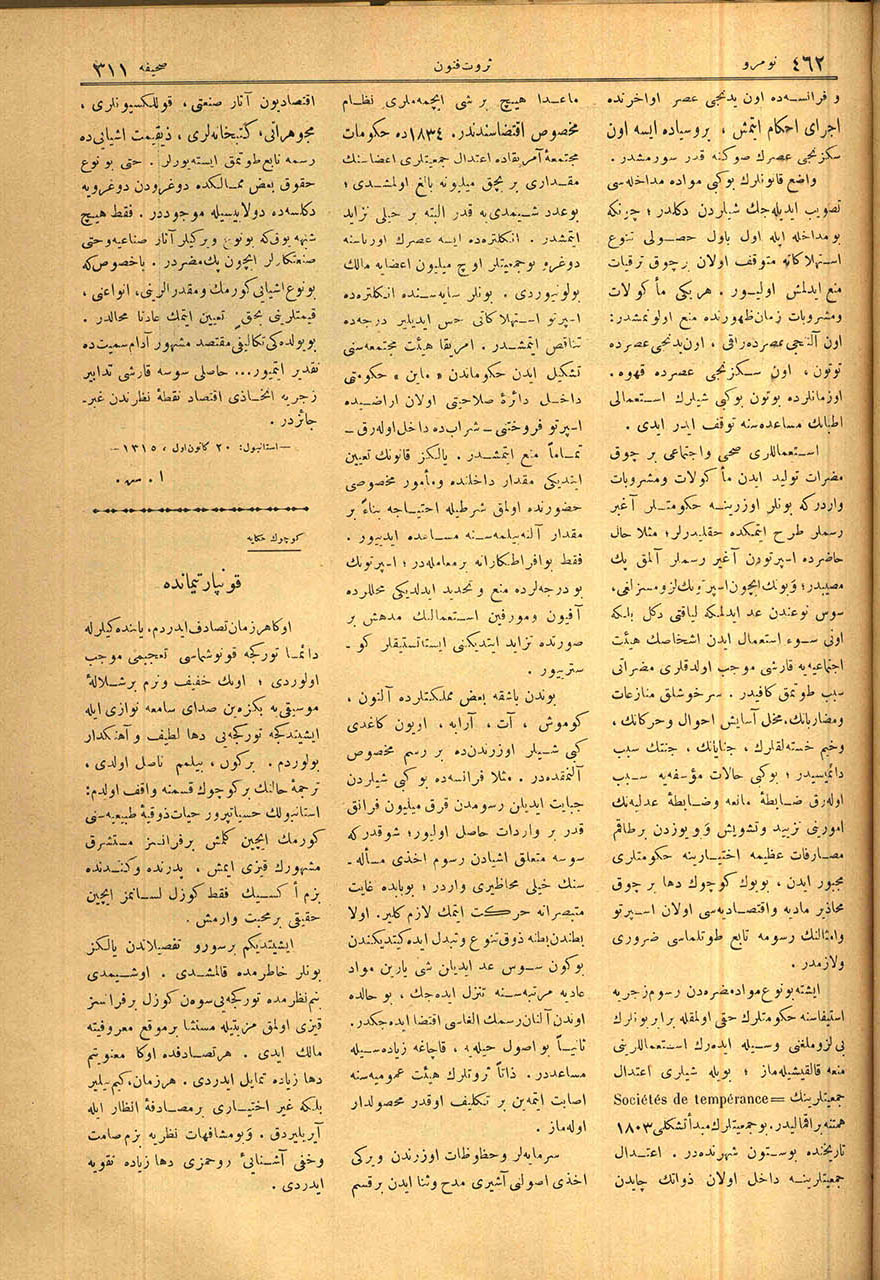 نومرو ٤٦٢
ثروت فنون
صحیفه ٣١١
و فرانسه‌ده اون یدنجی عصر اواخرنده
اجرای احکام ایتمش ، بروسیاده ایسه اون
سکزنجی عصرك صوکنه قدر سورمشدر .
واضع قانونلرك بوکبی مواده مداخله‌سی
تصویب ایدیله‌جك شیلردن دکلدر ؛ چونکه
بو مداخله ایله اول باول حصولی تنوع
استهلاکاته متوقف اولان برچوق ترقیات
منع ایدلمش اولیور . هربکی مأکولات
ومشروبات زمان‌ظهورنده منع اولونمشدر :
اون آلتنجی عصرده راقی ، اون‌یدنجی عصرده
توتون ، اون سکزنجی عصرده قهوه .
اوزمانلرده بوتون بوکبی شیلرك استعمالی
اطبانك مساعده‌سنه توقف ایدر ایدی .
استعماللری صحی واجتماعی بر چوق
مضرات تولید ایدن مأکولات ومشروبات
واردرکه بونلر اوزرینه حکومتلر آغیر
رسملر طرح ایتمکده حقلیدرلر ؛ مثلا حال
حاضرده اسپرتودن آغیر رسملر آلمق پك
مصیبدر ؛ وبونك ایچون اسپرتونك لزومسزلغی،
سوس نوعندن عد ایدلمکه لیاقتی دکل بلکه
اونی سوء استعمال ایدن اشخاصك هیئت
اجتماعیه‌یه قارشی موجب اولدقلری مضراتی
سبب طوتمق کافیدر . سرخوشلق منازعات
ومضارباتك، مخل آسایش احوال وحرکاتك ،
وخیم خسته‌لقلرك ، جنایاتك ، جنتك سبب
دائمیسیدر ؛ بوکبی حالات مؤسفه‌یه سبب
اوله‌رق ضابطهٔ مانعه وضابطهٔ عدلیه‌نك
امورنی تزیید وتشویش وبو یوزدن برطاقم
مصارفات عظیمه اختیارینه حکومتلری
مجبور ایدن ، بویوك کوچوك دها بر چوق
محاذیر مادیه واقتصادیه‌سی اولان اسپرتو
وامثالنك رسومه تابع طوتلماسی ضروری
ولازمدر .
ایشته بونوع مواد مضره‌دن رسوم زجریه
استیفاسنه حکومتلرك حقی اولمقله برابر بونلرك
بی لزوملغنی وسیله ایده‌رك استعماللرینی
منعه قالقیشیله‌ماز ؛ بویله شیلری اعتدال
جمعیتلرینك = Sociétés de tempérance
همتنه براقمالیدر . بوجمعیتلرك مبدأ تشکلی ١٨٠٣
تاریخنده بوستون شهرنده‌در . اعتدال
جمعیتلرینه داخل اولان ذواتك چایدن
ماعدا هیچ بر شی ایچمه‌ملری نظام
مخصوص اقتضاسندندر . ١٨٣٤ده حکومات
مجتمعهٔ آمریقاده اعتدال جمعیتلری اعضاسنك
مقداری بر بچق میلیونه بالغ اولمشدی ؛
بوعدد شیمدی‌یه قدر البته بر خیلی تزاید
ایتمشدر . انکلتره‌ده ایسه عصرك اورتاسنه
دوغرو بوجمعیتلر اوچ میلیون اعضایه مالك
بولونیوردی . بونلر سایه‌سنده انکلتره‌ده
اسپرتو استهلاکاتی حس ایدیلیر درجه‌ده
تناقص ایتمشدر . امریقا هیئت مجتمعه‌سنی
تشکیل ایدن حکوماتدن «ماین» حکومتی
داخل دائرهٔ صلاحیتی اولان اراضیده
اسپرتو فروختنی ـ شراب‌ده داخل اوله‌رق ـ
تماماً منع ایتمشدر . یالکز قانونك تعیین
ایتدیکی مقدار داخلنده ومأمور مخصوصی
حضورنده اولمق شرطیله احتیاجه بناءً بر
مقدار آلنه‌بیلمه‌سنه مساعده ایدییور .
فقط بو افراطکارانه بر معامله‌در ؛ اسپرتونك
بو درجه‌لرده منع و تحدید ایدلدیکی محللرده
آفیون ومورفین استعمالنك مدهش بر
صورتده تزاید ایتدیکنی ایستاتستیقلر کو ـ
سترییور .
بوندن باشقه بعض مملکتلرده آلتون ،
کوموش ، آت ، آرابه ، اویون کاغدی
کبی شیلر اوزرندن‌ده بر رسم مخصوص
آلنمقده‌در . مثلا فرانسه‌ده بو کبی شیلردن
جبایت ایدیلن رسومدن قرق میلیون فرانق
قدر بر واردات حاصل اولیور ؛ شوقدرکه
سوسه متعلق اشیادن رسوم اخذی مسأله ـ
سنك خیلی محاظیری واردر ؛ بوبابده غایت
متبصرانه حرکت ایتمك لازم کلیر . اولا
بطندن بطنه ذوق تنوع و تبدل ایده‌کیتدیکندن
بوکون سوس عد ایدیلن شی یارین مواد
عادیه مرتبه‌سنه تنزل ایده‌جك ، بو حالده
اوندن آلنان رسمك الغاسی اقتضا ایده‌جکدر.
ثانیاً بو اصول حیله‌یه ، قاچاغه زیاده‌سیله
مساعددر . ذاتاً ثروتلرك هیئت عمومیه‌سنه
اصابت ایتمه‌ین بر تکلیف اوقدر محصولدار
اوله‌ماز .
سرمایه‌لر وحظوظات اوزرندن ویرکی
اخذی اصولنی آشیری مدح وثنا ایدن برقسم
اقتصادیون آثار صنعتی ، قوللکسیونلری ،
مجوهراتی ، کتبخانه‌لری ، ذیقیمت اشیایی‌ده
رسمه تابع طوتمق ایسته‌یورلر . حتی بو نوع
حقوق بعض ممالکده دوغرودن دوغرویه
دکلسه‌ده دولاییسیله موجوددر . فقط هیچ
شبهه یوق‌که بونوع ویرکیلر آثار صناعیه‌وحتی
صنعتکارلر ایچون پك مضردر . باخصوص‌که
بونوع اشیایی کورمك ومقدارلرینی، انواعنی ،
قیمتلرینی بحق تعیین ایتمك عادتا محالدر .
بویولده‌کی تکالیفی مقتصد مشهور آدام سمیت‌ده
تقدیر ایتمیور... حاصلی سوسه قارشی تدابیر
زجریه اتخاذی اقتصاد نقطهٔ نظرندن غیر ـ
جائزدر .
— استانبول : ٢٠ کانون اول ، ١٣١٥ —
ا . س .
کوچوك حکایه
قونپارتیمانده
اوکا هر زمان تصادف ایدردم ، یاننده‌کیلرله
دائما تورکجه قونوشماسی تعجبمی موجب
اولوردی ؛ اونك خفیف ونرم برشلالهٔ
موسیقی‌یه بکزه‌ین صدای سامعه نوازی ایله
ایشیتدکجه تورکجه‌یی دها لطیف و آهنکدار
بولوردم . برکون ، بیلمم ناصل اولدی ،
ترجمهٔ حالنك برکوچوك قسمنه واقف اولدم :
استانبولك حسیاتپرور حیات ذوقیهٔ طبیعیه‌سنی
کورمك ایچین کلمش برفرانسز مستشرق
مشهورك قیزی ایمش ، پدرنده وکندنده
بزم أکسیك فقط کوزل لسانمز ایچین
حقیقی برمحبت وارمش .
ایشیتدیکم برسورو تفصیلاتدن یالکز
بونلر خاطرمده قالمشدی . او شیمدی
بنم نظرمده تورکجه‌یی سوه‌ن کوزل برفرانسز
قیزی اولمق مزیتیله مستثنا بر موقع معروفیته
مالك ایدی . هرتصادفده اوکا معنویتم
دها زیاده تمایل ایدردی . هرزمان، کیم بیلیر
بلکه غیر اختیاری برمصادفهٔ انظار ایله
آیریلیردق . وبو مشافهات نظریه بزم صامت
وخفی آشنایئ روحمزی دها زیاده تقویه
ایدردی .